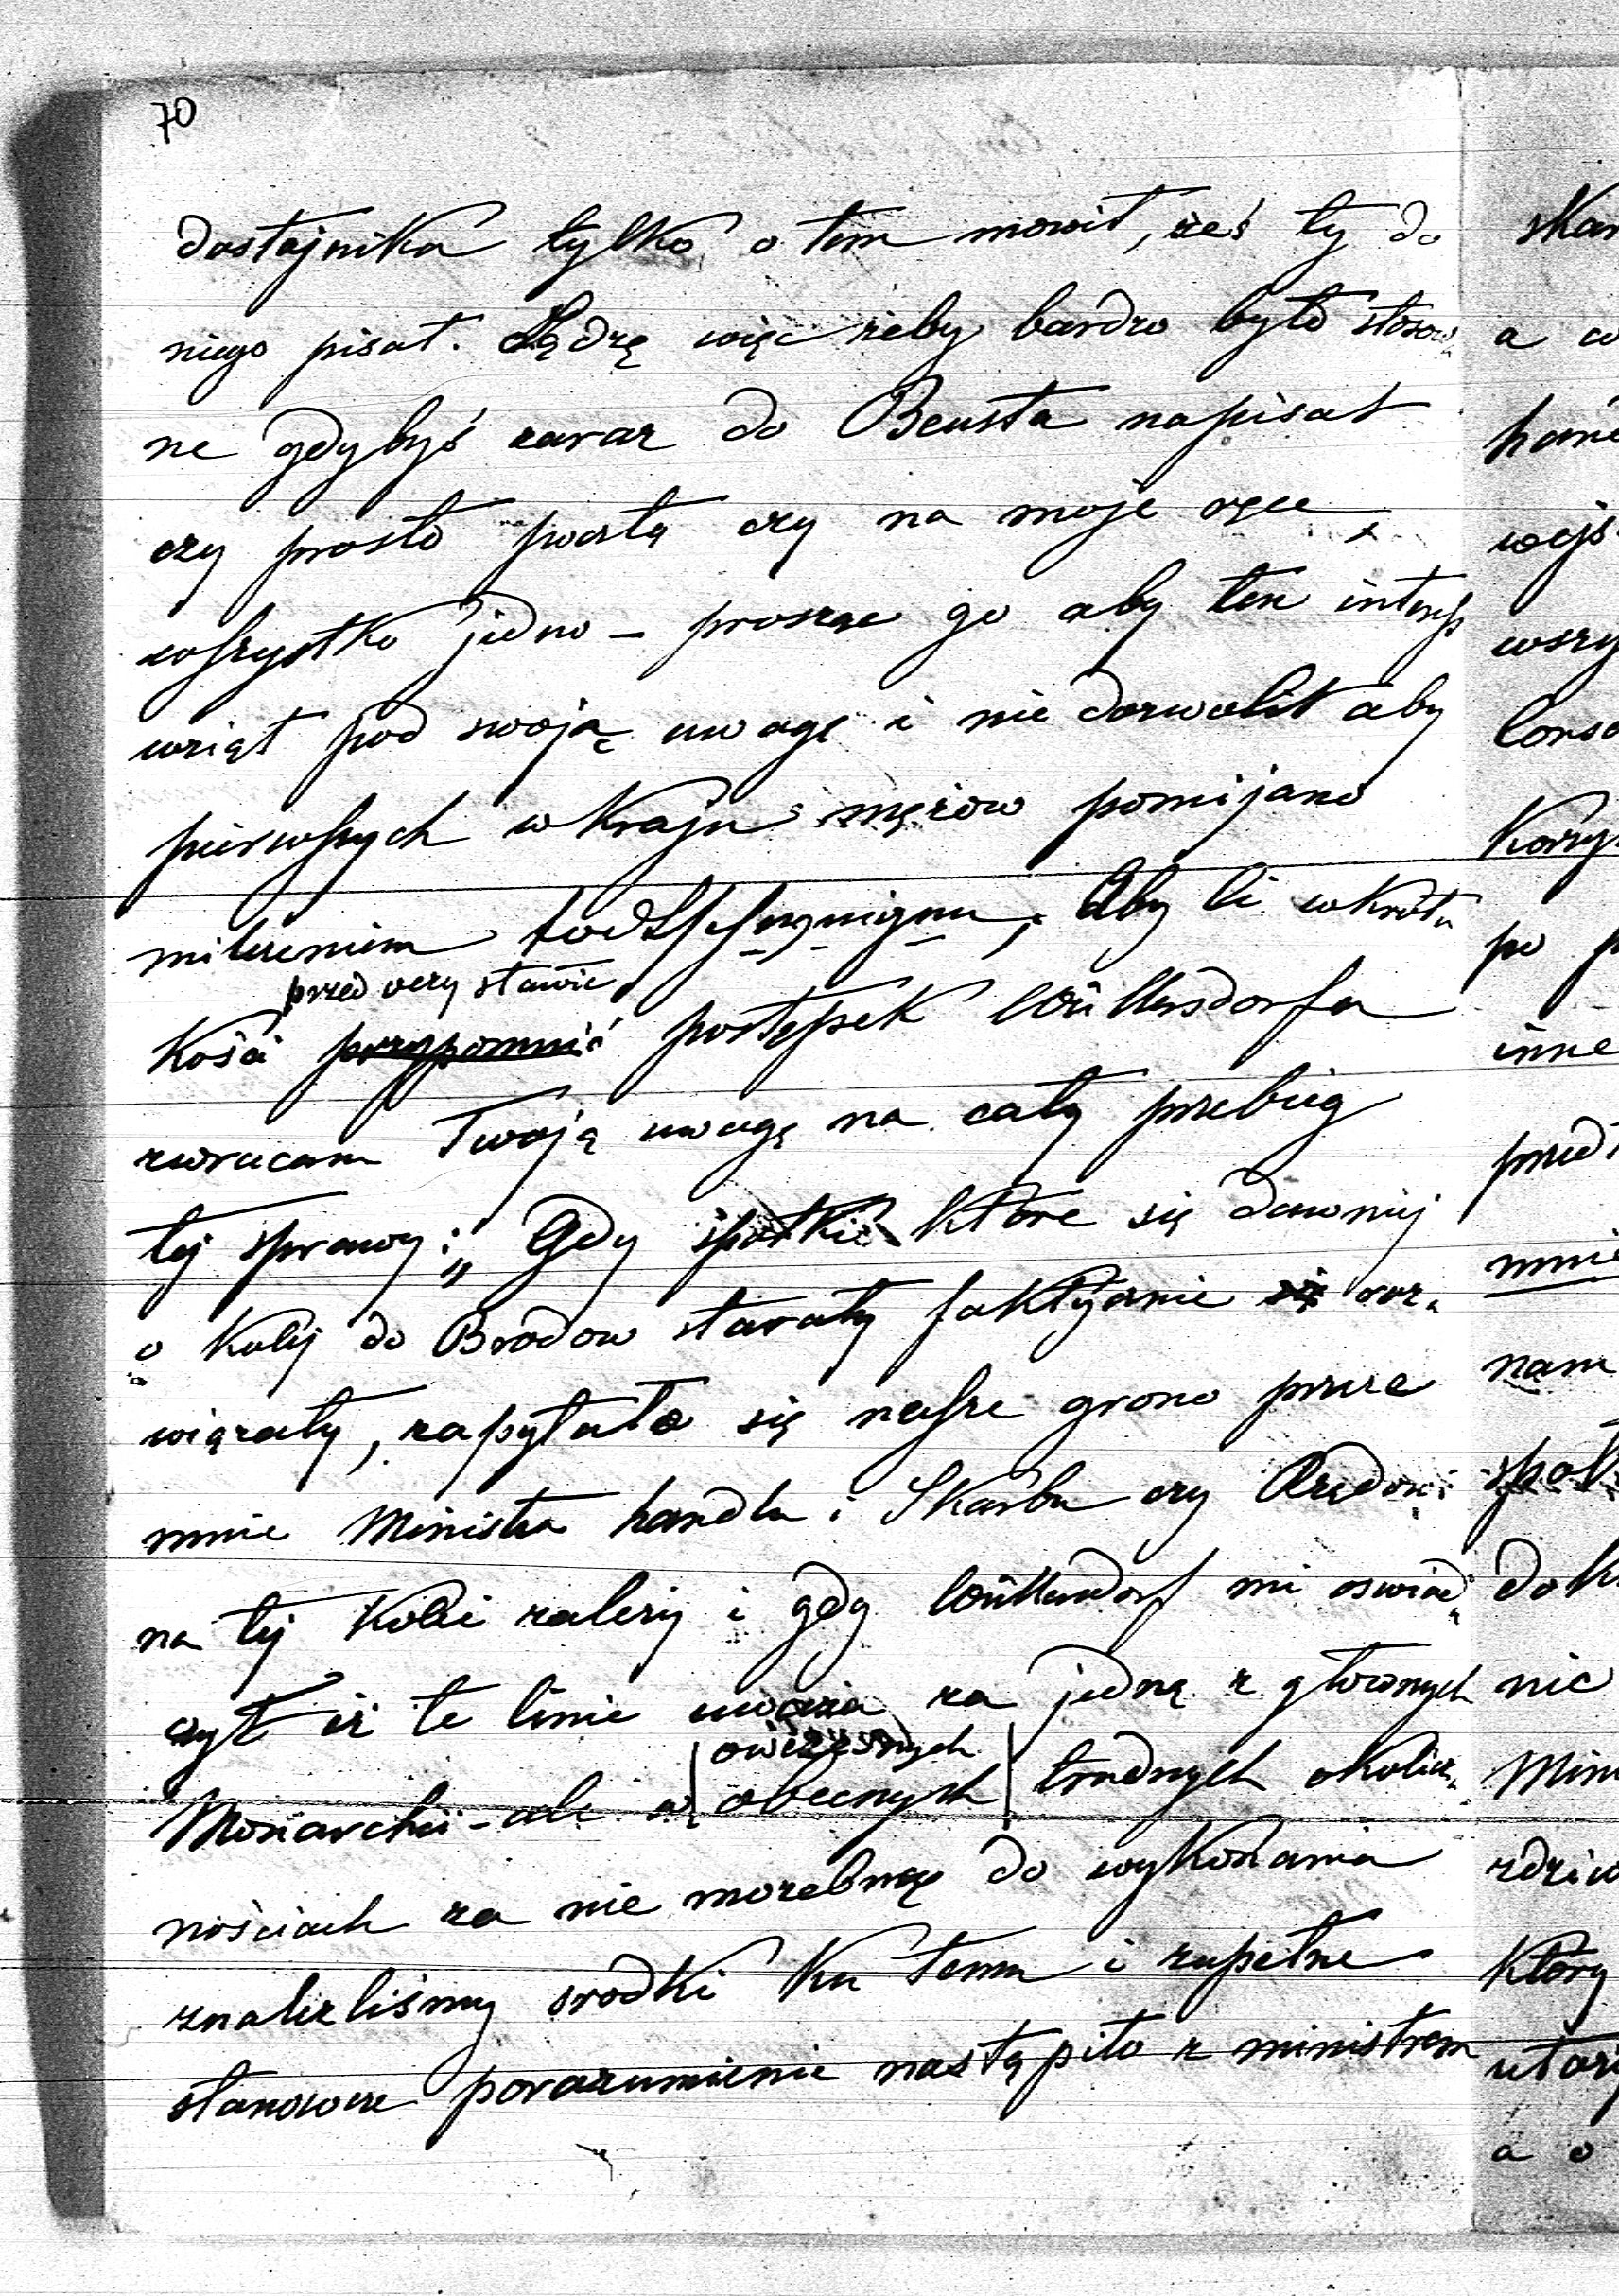 70
dostojnika tylko o tem mowił, żeś ty do
niego pisał. Sądzę więc żeby bardzo było stosow
ne gdybyś zaraz do Beusta napisał
czy prosto pocztą czy na moje ręce
wszystko jedno – prosząc go aby ten interes
wziął pod swoją uwagę i nie dozwolił aby
pierwszych w kraju mężow pomijano
milczeniem . Aby Ci w krót
przed oczy stawić
kości przypomnić postępek Wüllersdorfa
zwracam Twoją uwagę na cały przebieg
tej sprawy: „Gdy społki które się dawniej
o kolej do Brodow starały faktycznie się roz
wiązały, zapytało się nasze grono przeze
mnie Ministra handlu i Skarbu czy Rządowi
na tej kolei zależy i gdy Wüllersdorf mi oswiad
czył iż te linie uważa za jedną z głownych
owczesnych
Monarchii – ale w obecnych trudnych okolicz
nościach za nie możebną do wykonania
znaleźliśmy srodki ku temu i zupełne
stanowcze porozumienie nastąpiło z ministrem